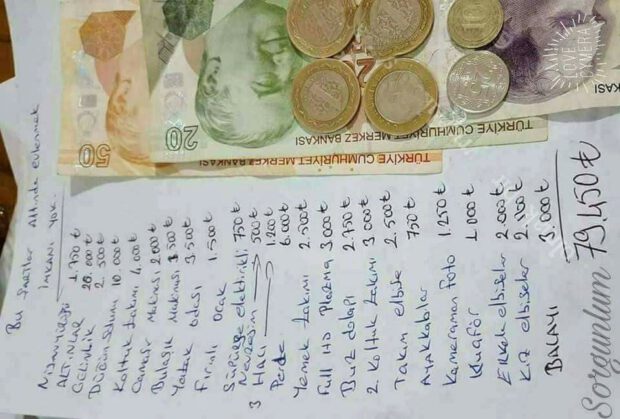 Bu Şartlar Altında evlenmek
imkanı yok.
Nişan yüzüğü 1.750 ₺
ALTINLAR 20.000 ₺
GELİNLİK 2.500 ₺
Düğün Salonu 10.000 ₺
Koltuk takımı 4.000 ₺
Çamaşır Makinası 2.000 ₺
Bulaşık Makinası 1.500 ₺
Yatak odası 3.500 ₺
Fırınlı Ocak 1.500 ₺
Süpürge elektrikli 750 ₺
Nevresim 500 ₺
3 Halı 1.200 ₺
Perde 6.000 ₺
Yemek takımı 2.500 ₺
Full HD Plazma 3.000 ₺
Buz dolabı 2.750 ₺
2 Koltuk takımı 3.000 ₺
Takım elbise 2.500 ₺
Ayakkabılar 750 ₺
Kameraman foto 1.250 ₺
Kuaför 1.000 ₺
Erkek elbiseler 2.000 ₺
Kız elbiseler 2.100 ₺
BALAYI 3.000 ₺
79.450 ₺
50
TÜRKİYE CUMHURİYET MERKEZ BANKASI
20
TÜRKİYE CUMHURİYET MERKEZ BANKASI
KASI
LOVE CYMERA
Sorgunlum